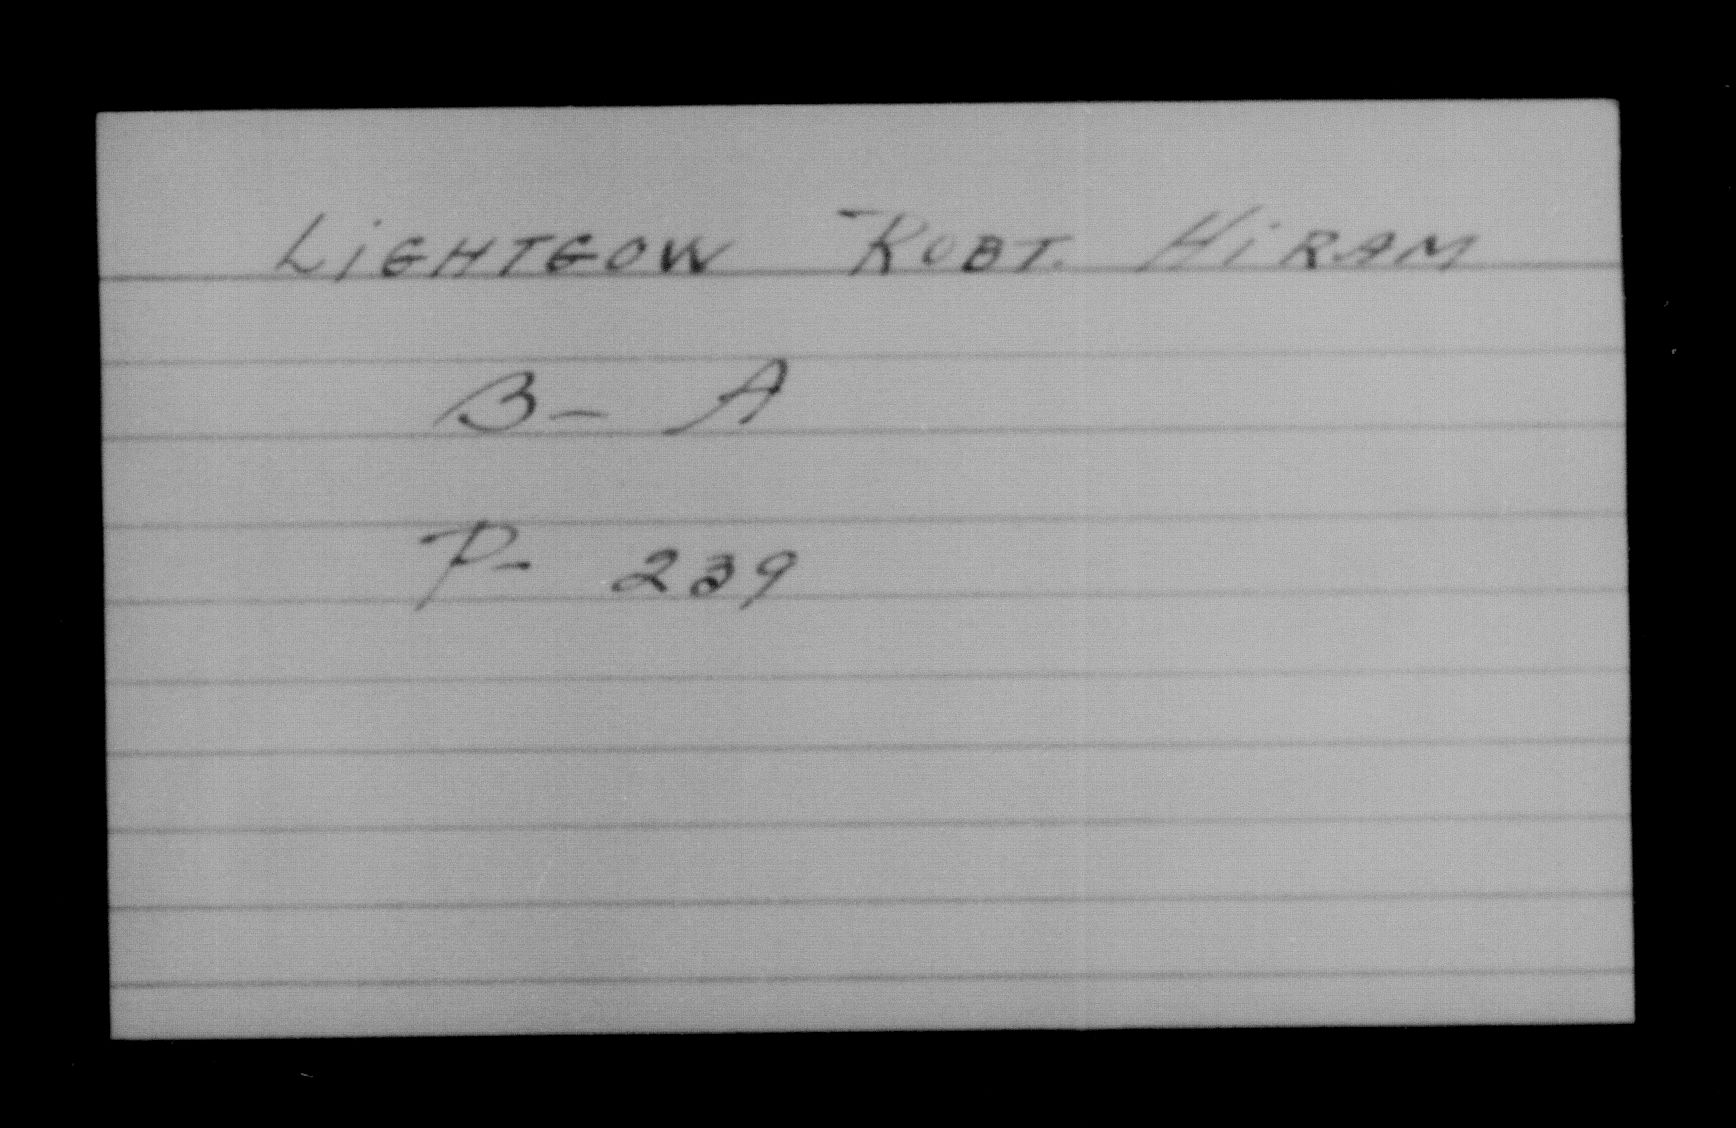 LiGHTGOW ROBT. HiRAM
B- A
P- 239